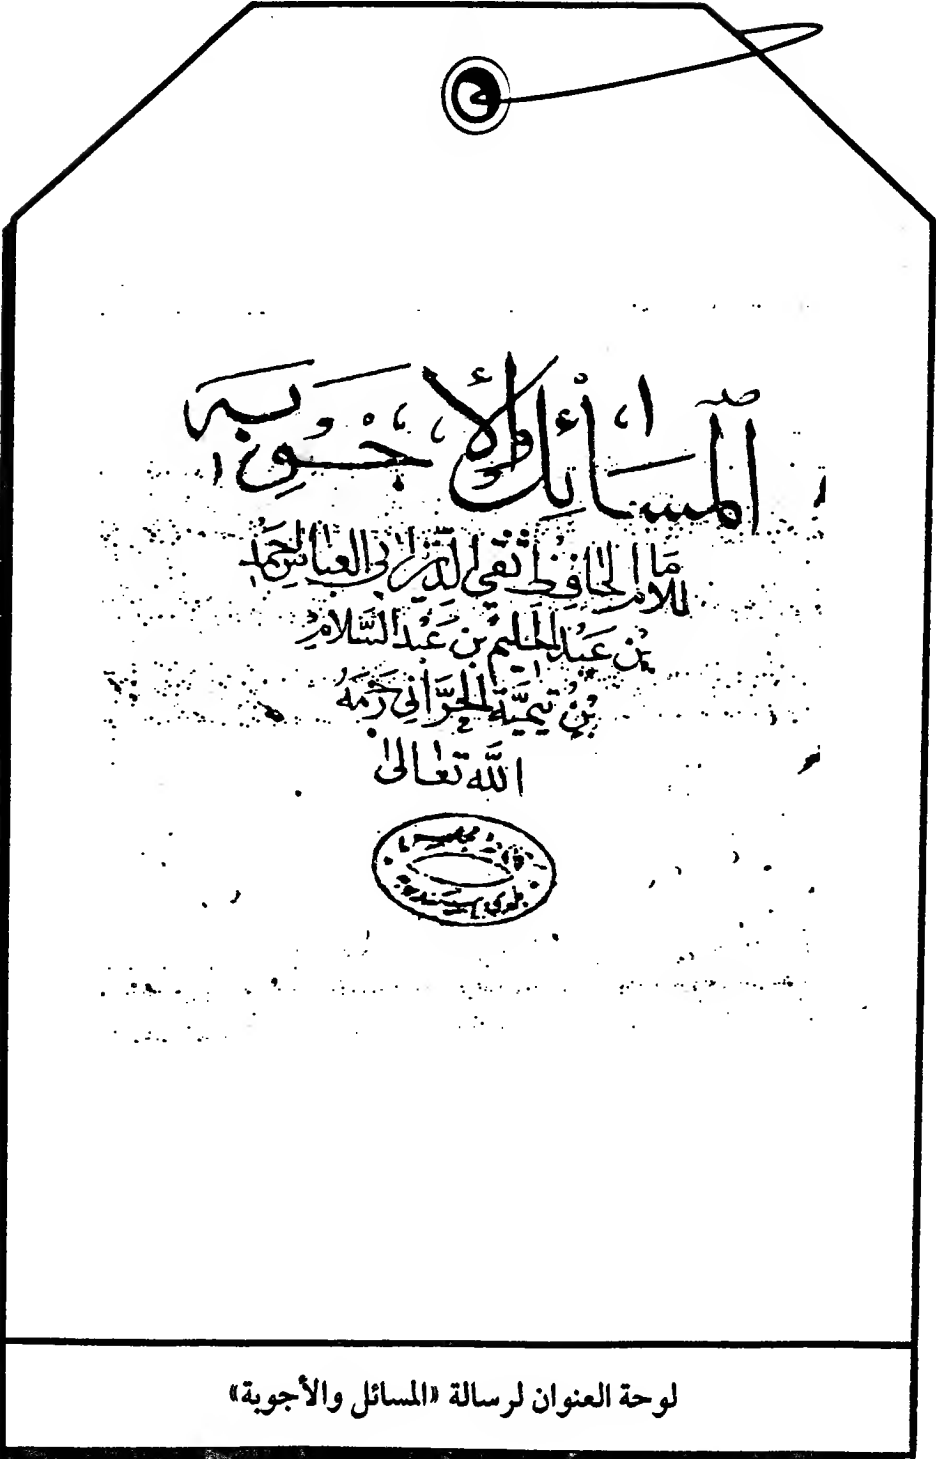 المسائل والأجوبة
للامام الحافظ تقي الدين ابي العباس احمد
بن عبد الحليم بن عبد السلام
بن تيمية الحراني رحمه
الله تعالى
لوحة العنوان لرسالة «المسائل والأجوبة»